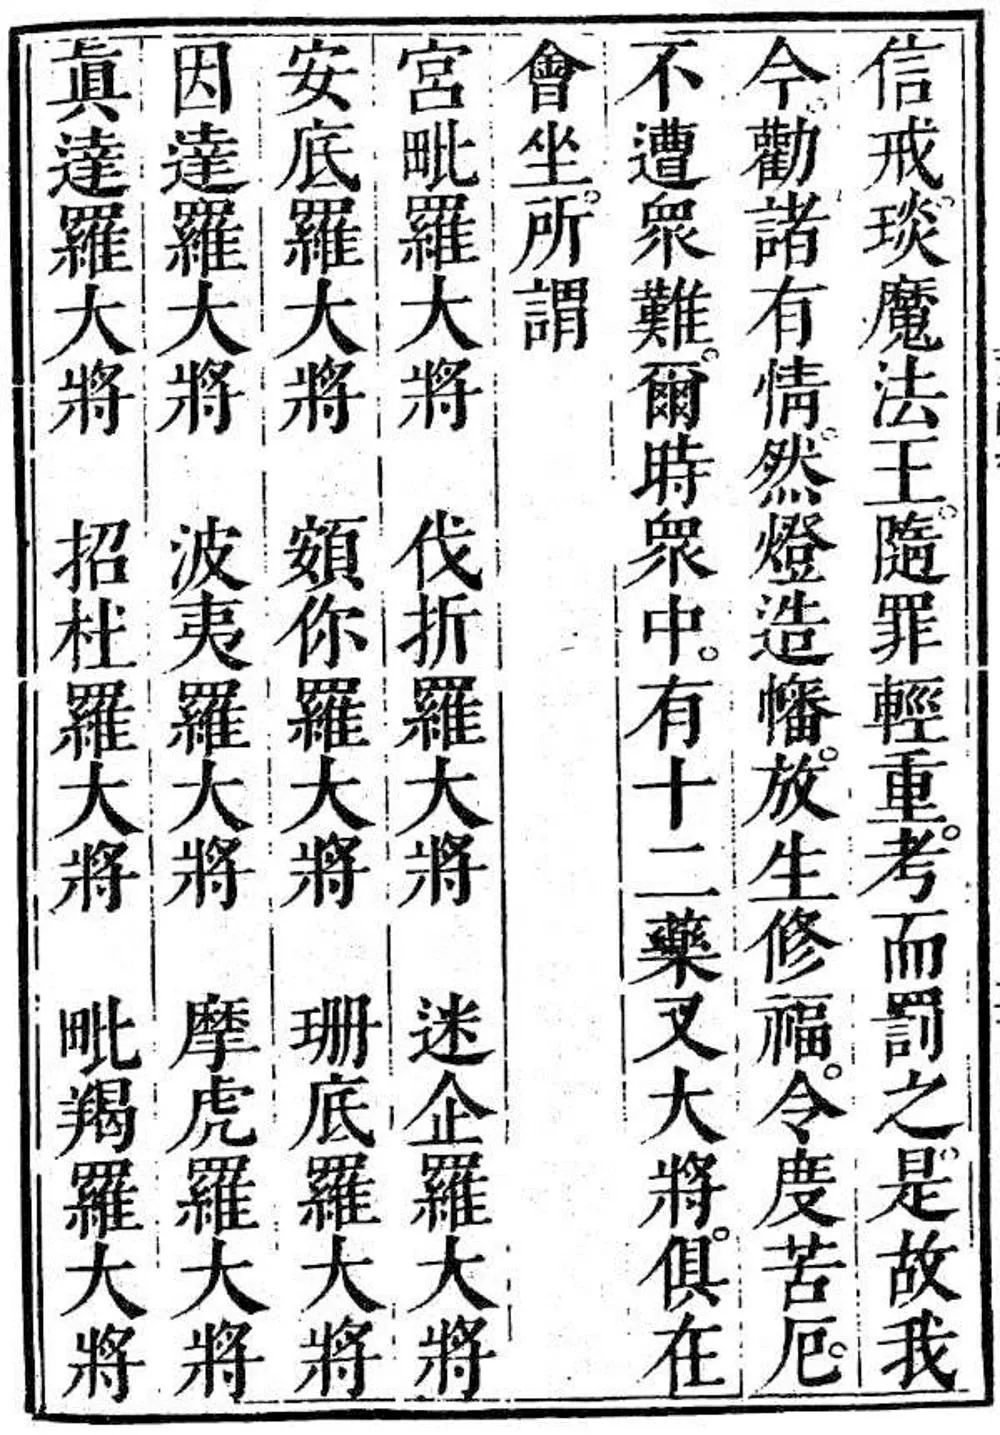 信戒琰魔法王。隨罪輕重。考而罰之。是故我
今。勸諸有情。然燈造幡。放生修福。令度苦厄。
不遭眾難。爾時眾中。有十二藥叉大將。俱在
會坐。所謂
宮毗羅大將　伐折羅大將　迷企羅大將
安底羅大將　頞你羅大將　珊底羅大將
因達羅大將　波夷羅大將　摩虎羅大將
真達羅大將　招杜羅大將　毗羯羅大將